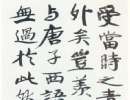 受當時之責
外矣豈羡
与唐子西語
無過於此然